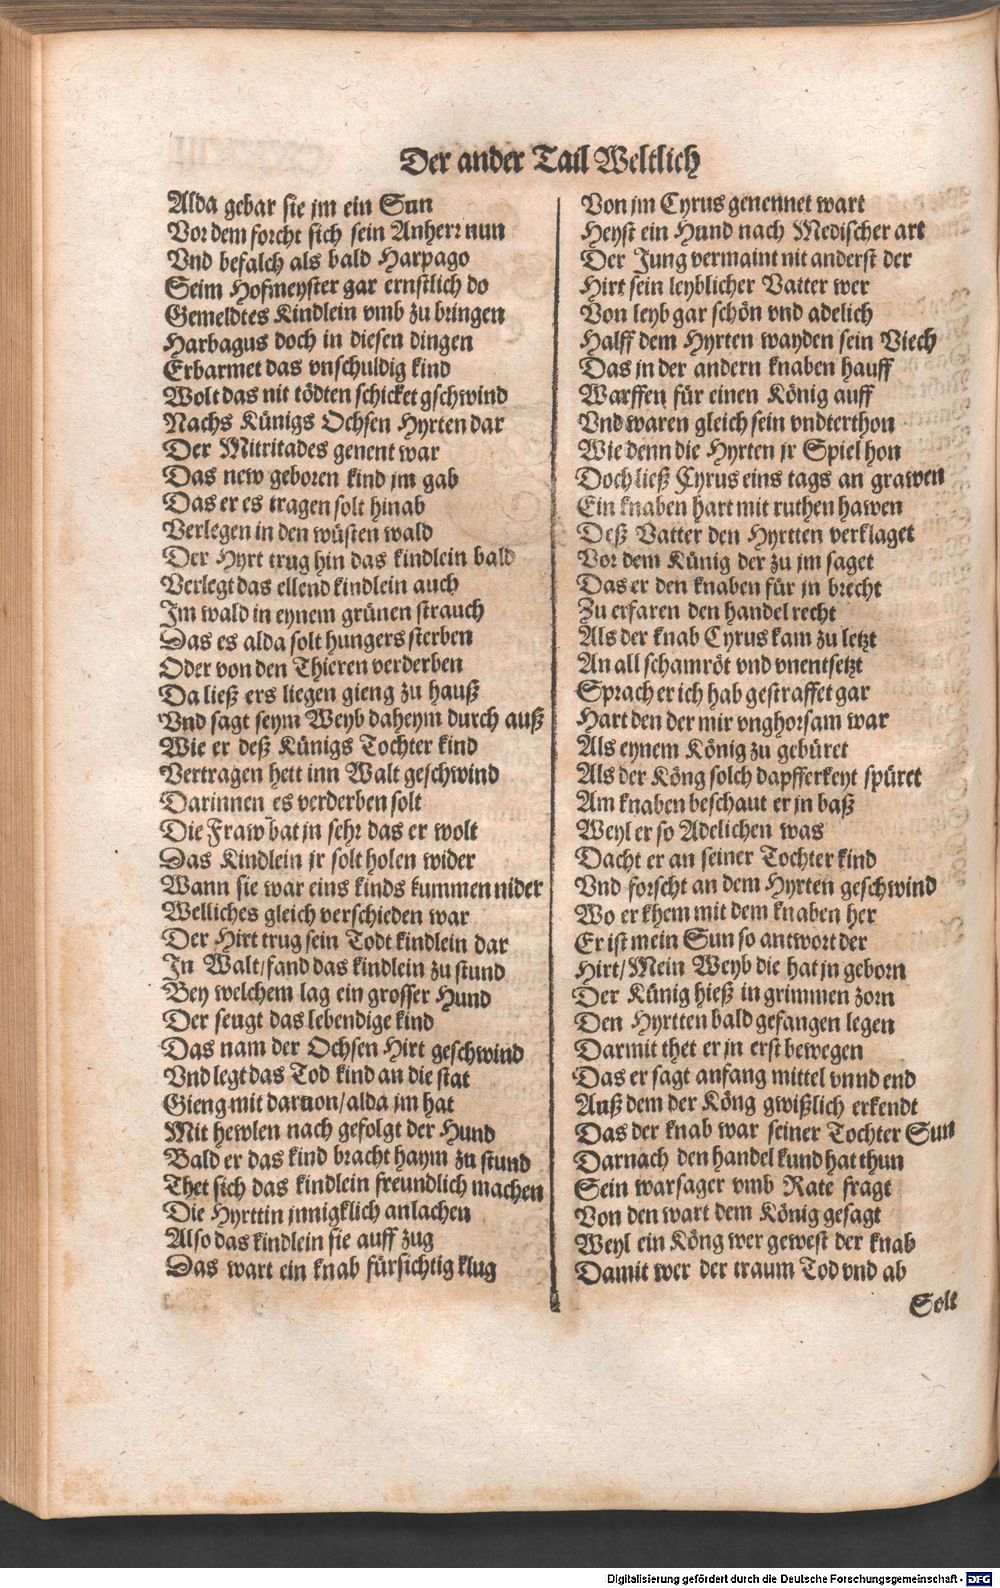 Der ander Tail Weltlich
Alda gebar sie jm ein Sun
Vor dem forcht sich sein Anherr nun
Vnd befalch als bald Harpago
Seim Hofmeyster gar ernstlich do
Gemeldtes Kindlein vmb zu bringen
Harbagus doch in diesen dingen
Erbarmet das vnschuldig kind
Wolt das nit tödten schicket gschwind
Nachs Künigs Ochsen Hyrten dar
Der Mitritades genent war
Das new geboren kind jm gab
Das er es tragen solt hinab
Verlegen in den wüsten wald
Der Hyrt trug hin das kindlein bald
Verlegt das ellend kindlein auch
Im wald in eynem grünen strauch
Das es alda solt hungers sterben
Oder von den Thieren verderben
Da ließ ers liegen gieng zu hauß
Vnd sagt seym Weyb daheym durch auß
Wie er deß Künigs Tochter kind
Vertragen hett inn Walt geschwind
Darinnen es verderben solt
Die Fraw bat jn sehr das er wolt
Das Kindlein jr solt holen wider
Wann sie war eins kinds kummen nider
Welliches gleich verschieden war
Der Hirt trug sein Todt kindlein dar
In Walt/fand das kindlein zu stund
Bey welchem lag ein grosser Hund
Der seugt das lebendige kind
Das nam der Ochsen Hirt geschwind
Vnd legt das Tod kind an die stat
Gieng mit daruon/alda jm hat
Mit hewlen nach gefolgt der Hund
Bald er das kind bracht haym zu stund
Thet sich das kindlein freundlich machen
Die Hyrttin jnnigklich anlachen
Also das kindlein sie auff zug
Das wart ein knab fürsichtig klug
Von jm Cyrus genennet wart
Heyst ein Hund nach Medischer art
Der Jung vermaint nit anderst der
Hirt sein leyblicher Vatter wer
Von leyb gar schön vnd adelich
Halff dem Hyrten wayden sein Viech
Das jn der andern knaben hauff
Warffen für einen König auff
Vnd waren gleich sein vndterthon
Wie denn die Hyrten jr Spiel hon
Doch ließ Cyrus eins tags an grawen
Ein knaben hart mit ruthen hawen
Deß Vatter den Hyrtten verklaget
Vor dem Künig der zu jm saget
Das er den knaben für jn brecht
Zu erfaren den handel recht
Als der knab Cyrus kam zu letzt
An all schamröt vnd vnentsetzt
Sprach er ich hab gestraffet gar
Hart den der mir vnghorsam war
Als eynem König zu gebüret
Als der Köng solch dapfferkeyt spüret
Am knaben beschaut er jn baß
Weyl er so Adelichen was
Dacht er an seiner Tochter kind
Vnd forscht an dem Hyrten geschwind
Wo er khem mit dem knaben her
Er ist mein Sun so antwort der
Hirt/Mein Weyb die hat jn geborn
Der Künig hieß in grimmen zorn
Den Hyrtten bald gefangen legen
Darmit thet er jn erst bewegen
Das er sagt anfang mittel vnnd end
Auß dem der Köng gwißlich erkendt
Das der knab war seiner Tochter Sun
Darnach den handel kund hat thun
Sein warsager vmb Rate fragt
Von den wart dem König gesagt
Weyl ein Köng wer gewest der knab
Damit wer der traum Tod vnd ab
Solt
Digitalisierung gefördert durch die Deutsche Forschungsgemeinschaft - DFG